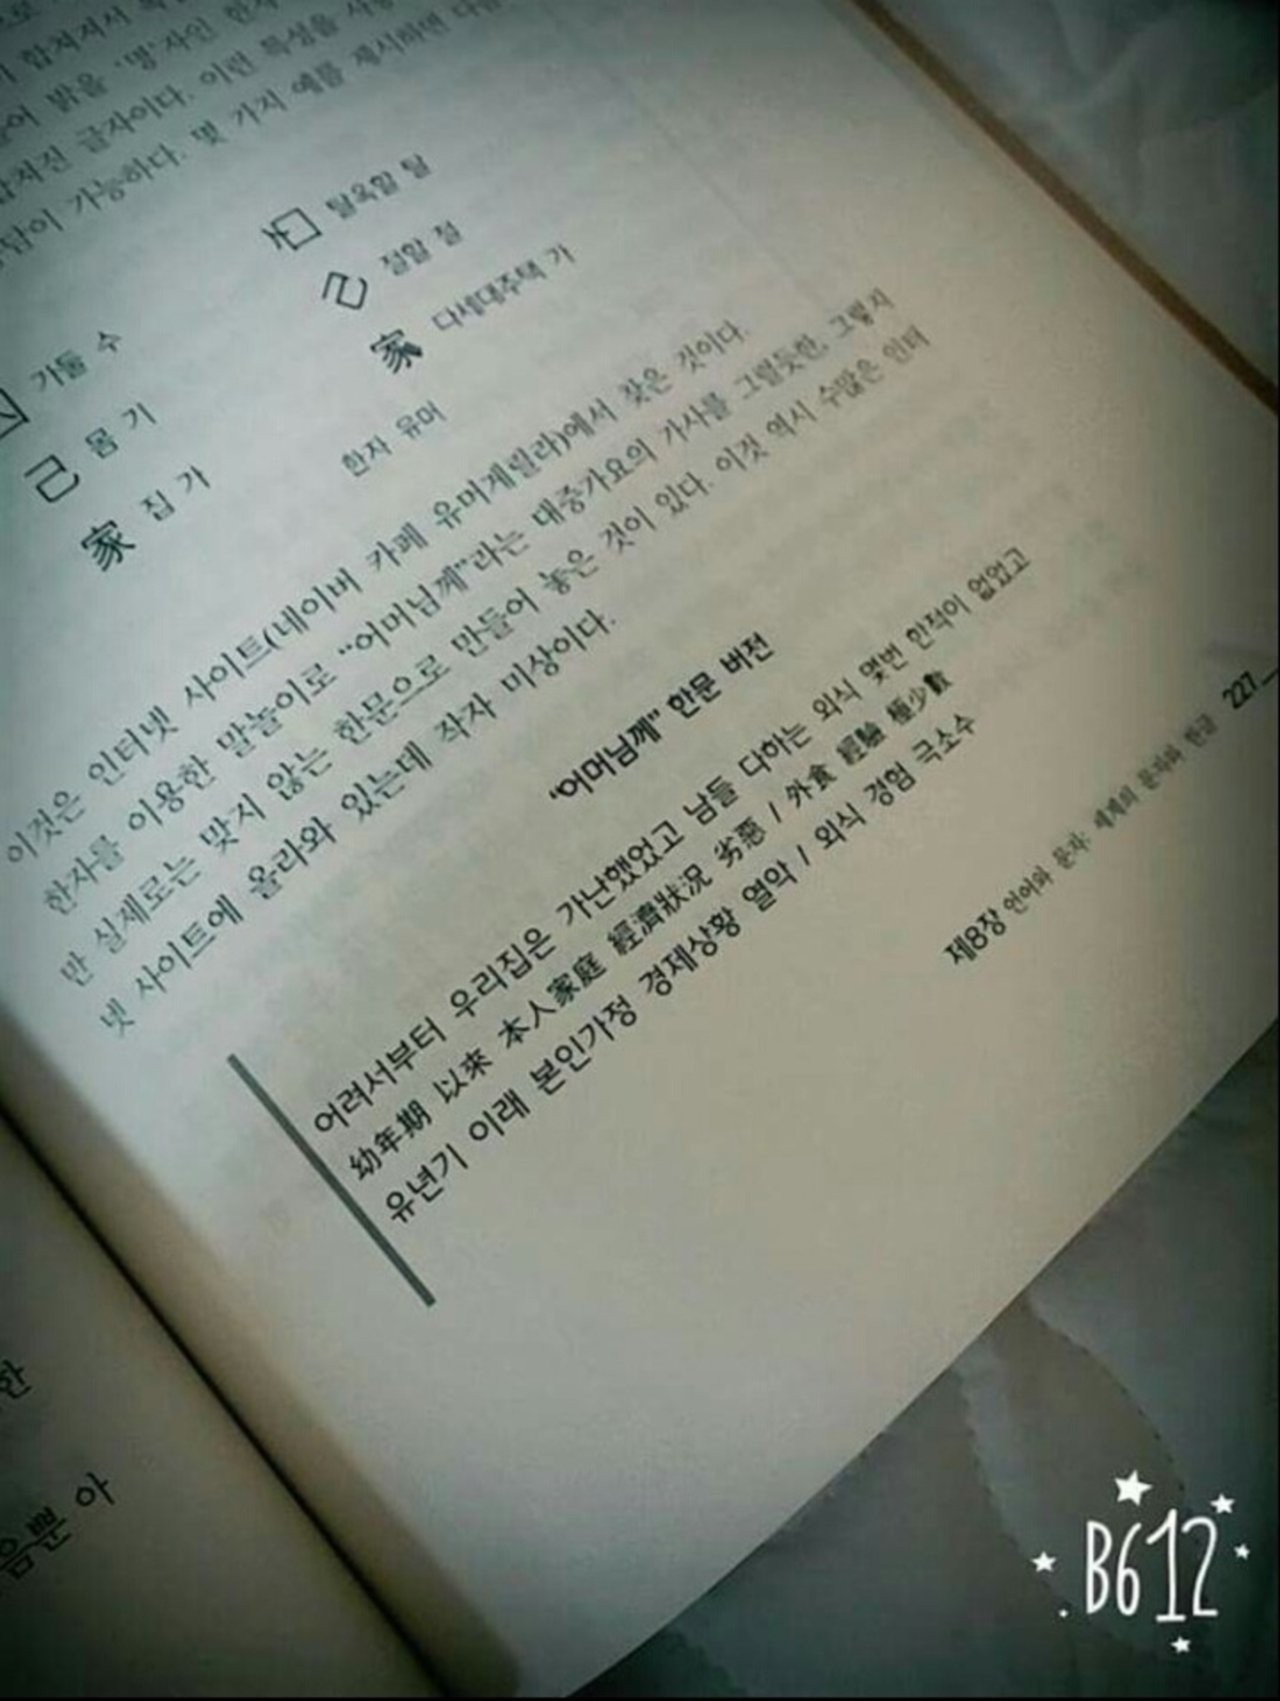 합쳐져서
밝을 '명'자인 한자
합쳐진 글자이다. 이런 특성을
가능하다. 몇 가지 예를 제시하면 다음
가둘 수
탈옥할 탈
己 몸 기
己 절할 절
家 집 가
家 다세대주택 가
한자 유머
이것은 인터넷 사이트(네이버 카페 유머게릴라)에서 찾은 것이다.
한자를 이용한 말놀이로 "어머님께"라는 대중가요의 가사를 그럴듯한, 그렇지
만 실제로는 맞지 않는 한문으로 만들어 놓은 것이 있다. 이것 역시 수많은 인터
넷 사이트에 올라와 있는데 작자 미상이다.
"어머님께" 한문 버전
어려서부터 우리집은 가난했었고 남들 다하는 외식 몇번 한적이 없었고
幼年期 以來 本人家庭 經濟狀況 劣惡 / 外食 經驗 極少數
유년기 이래 본인가정 경제상황 열악 / 외식 경험 극소수
제8장 언어와 문자: 세계의 문자와 한글 227
한
음뿐 아
B612